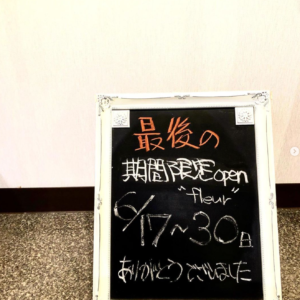 最後の
期間限定open
"fleur"
6/17~30日
ありがとうございました